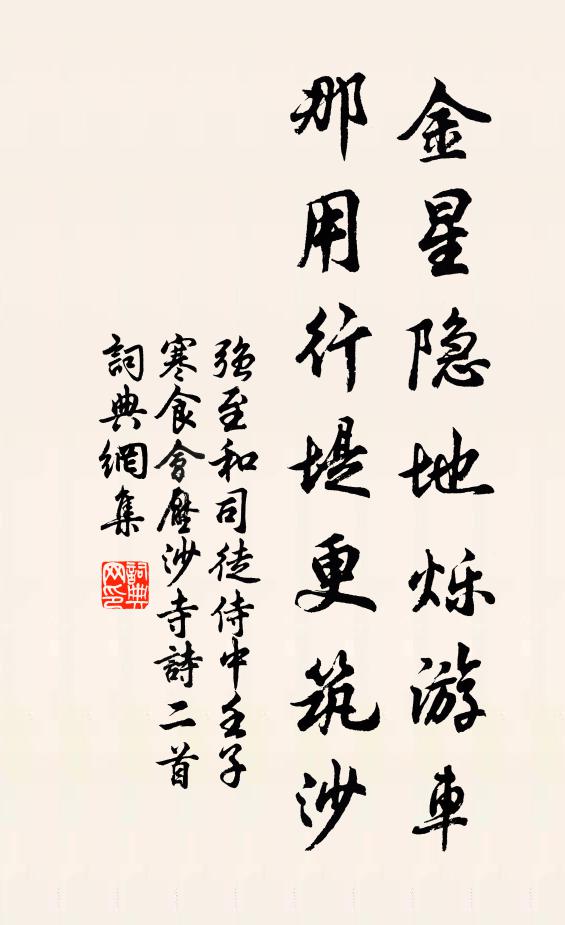 金星隐地烁游車
那用行堤更筑沙
強至和司徒侍中壬子
寒食會壓沙寺詩二首
詞典網集
詞典网印